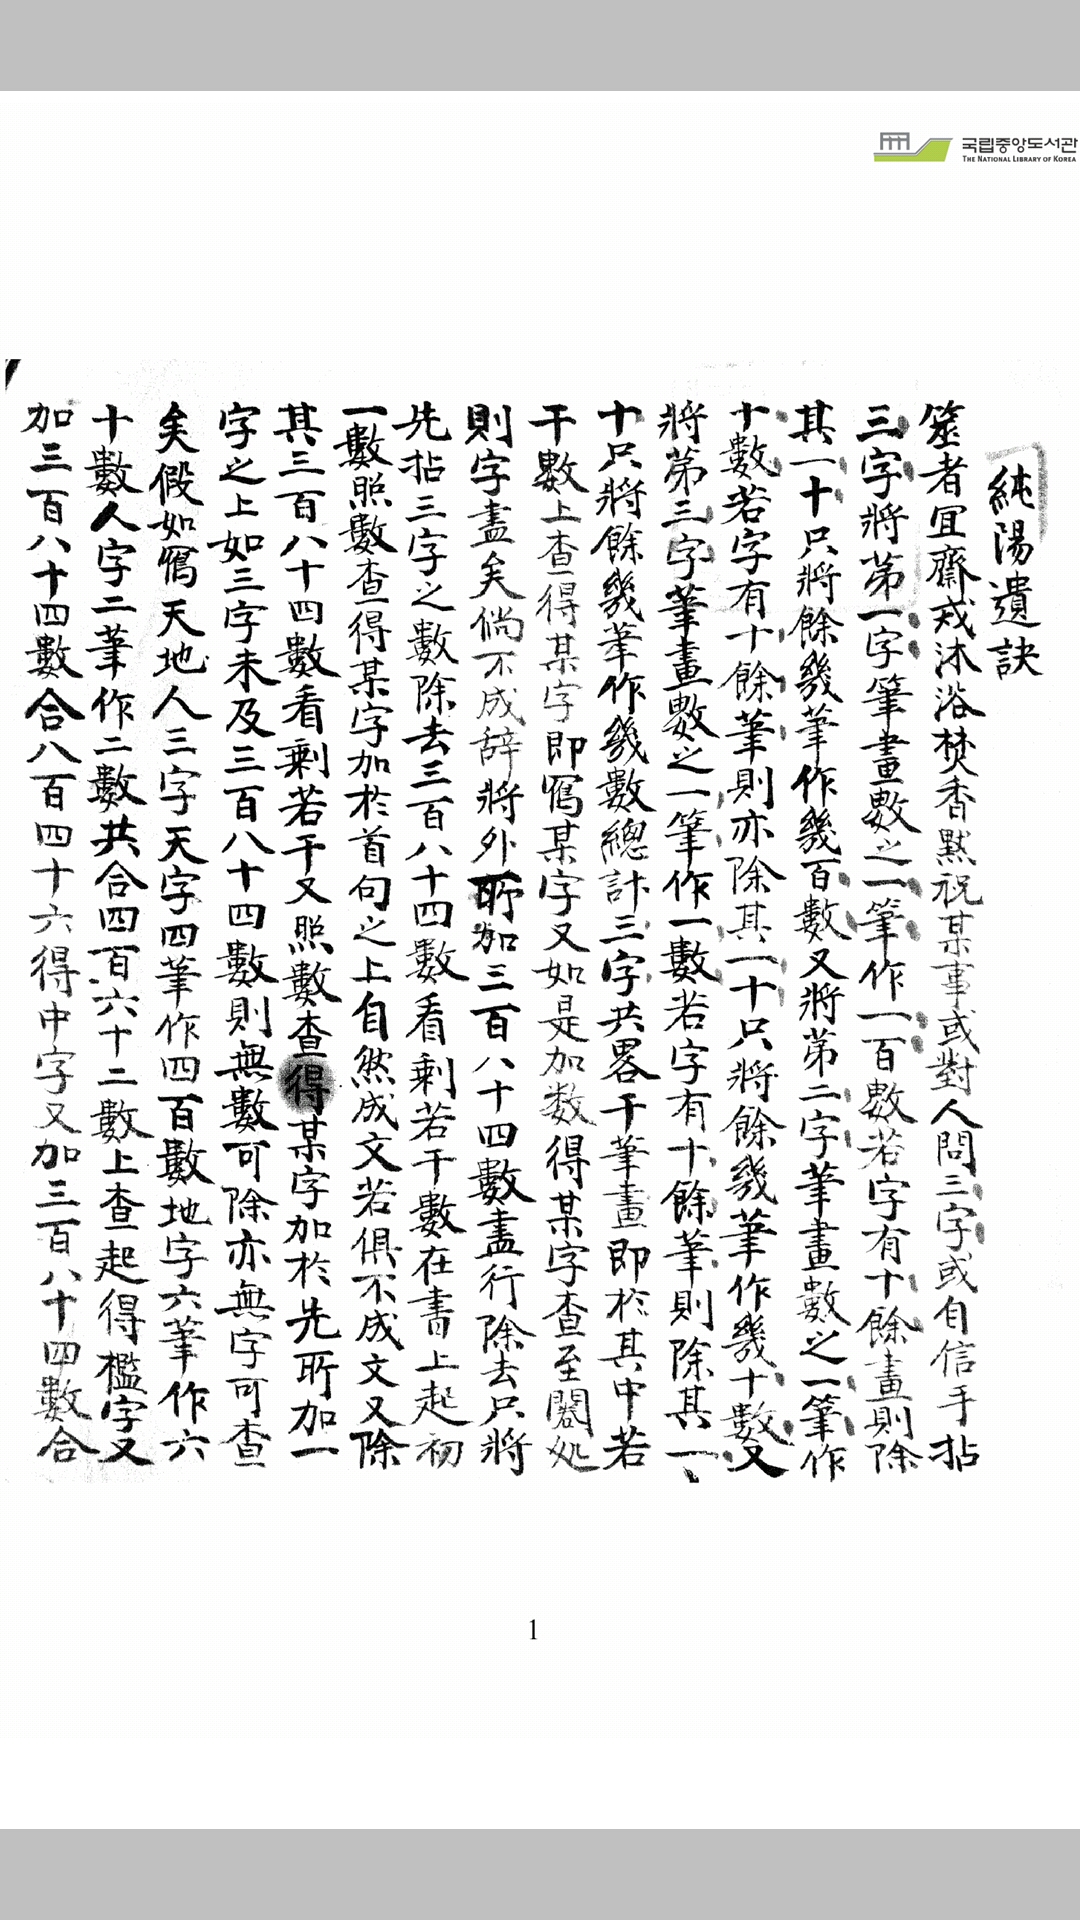 국립중앙도서관
THE NATIONAL LIBRARY OF KOREA
純陽遺訣
筮者宜齋戒沐浴焚香黙祝某事或對人問三字或自信手拈
三字將第一字筆畫數之一筆作一百數若字有十餘畫則除
其一十只將餘幾筆作幾百數又將第二字筆畫數之一筆作
十數若字有十餘筆則亦除其一十只將餘幾筆作幾十數又
將第三字筆畫數之一筆作一數若字有十餘筆則除其一
十只將餘幾筆作幾數總計三字共畧干筆畫即於其中若
干數上查得某字即寫某字又如是加数得某字查至闋処
則字盡矣倘不成辞將外所加三百八十四數盡行除去只將
先拈三字之數除去三百八十四數看剩若干數在書上起初
一數照數查得某字加於首句之上自然成文若俱不成文又除
其三百八十四數看剩若干又照數查得某字加於先所加一
字之上如三字未及三百八十四數則無數可除亦無字可查
矣假如寫天地人三字天字四筆作四百數地字六筆作六
十數人字二筆作二數共合四百六十二數上查起得檻字又
加三百八十四數合八百四十六得中字又加三百八十四數合
1